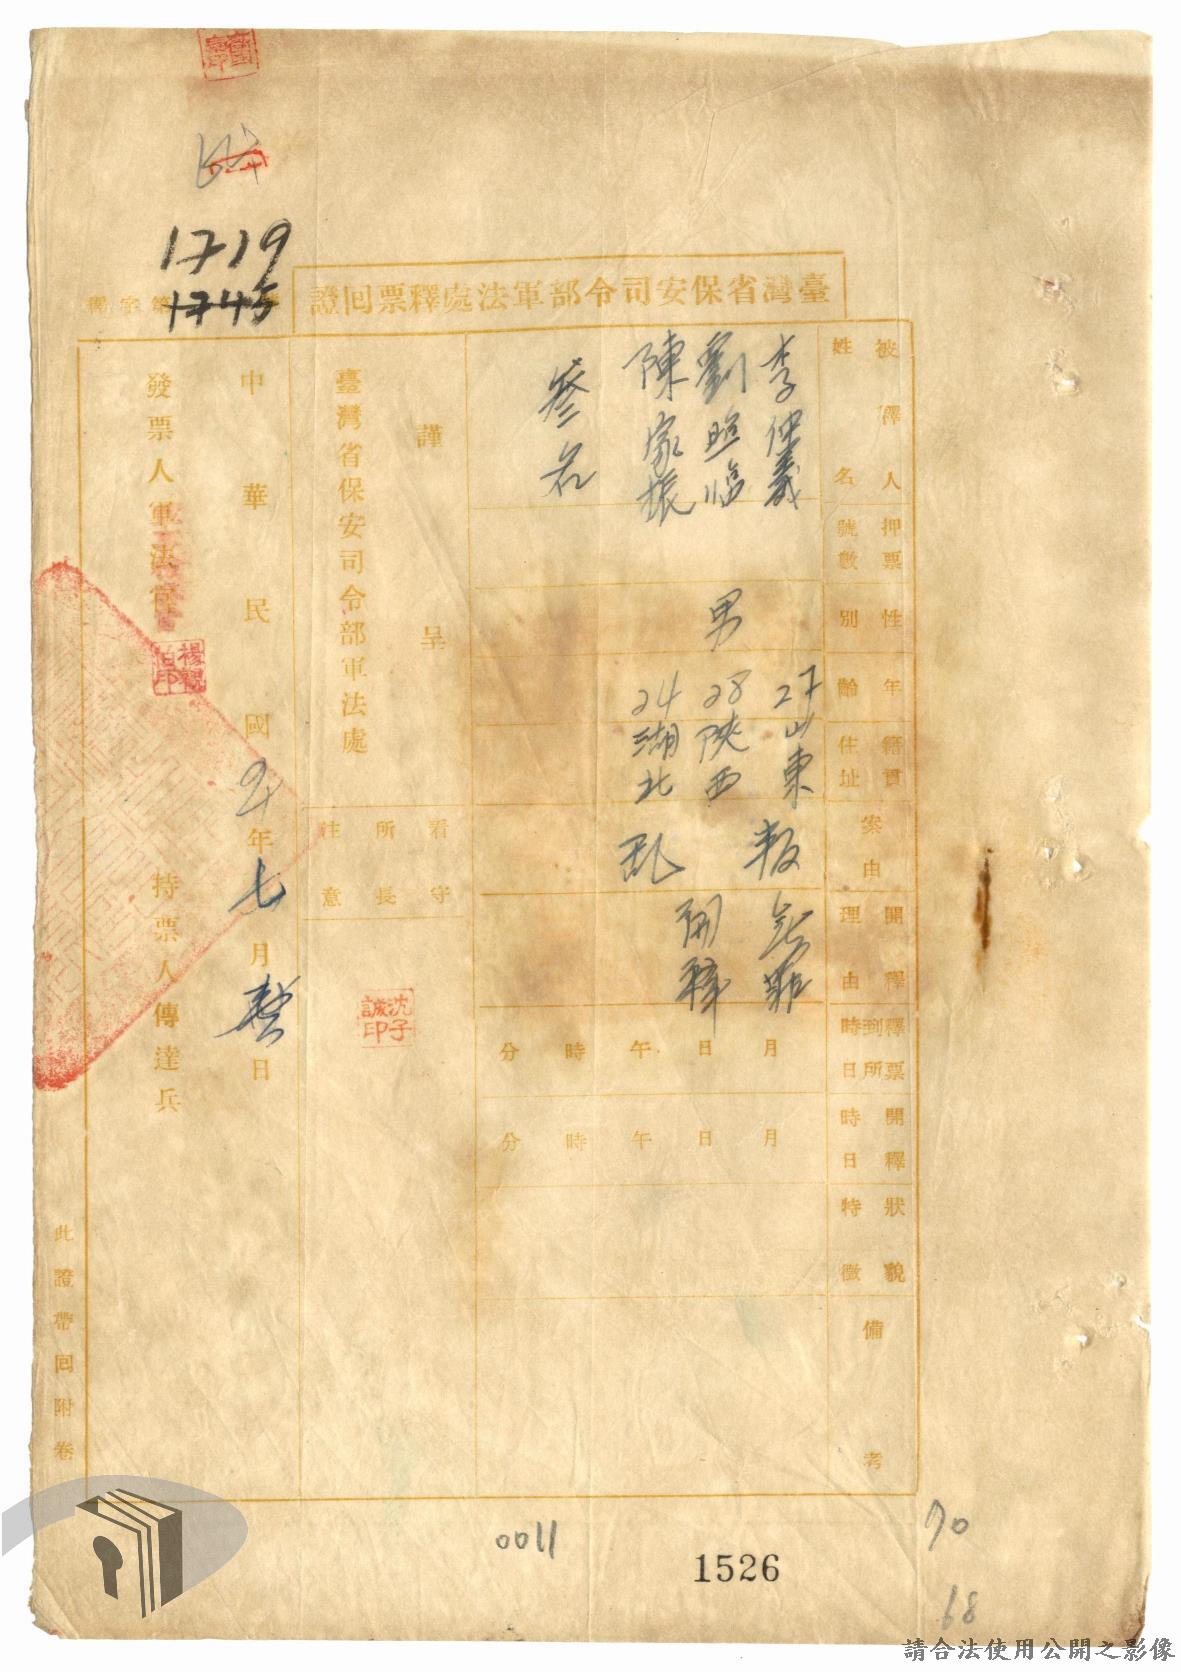 臺灣省保安司令部軍法處釋票回證
1719
1745
被釋人
姓名
李仲義
劉照臨
陳家振
叁名
押票
號數
性別
男
年齡
27
28
24
籍貫
住址
山東
陝西
湖北
案由
叛乱
開釋
理由
無罪
開釋
釋票
到所
時日
月 日 午 時 分
開釋
時日
月 日 午 時 分
狀貌
特徵
備考
謹呈
臺灣省保安司令部軍法處
看守
所長
注意
沈子
誠印
中華民國 年七月 日
發票人軍法官
楊親
伯印
持票人傳達兵
此證帶回附卷
0011
1526
70
68
請合法使用公開之影像